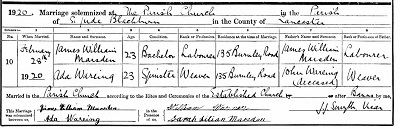 1920. Marriage solemnized at The Parish Church in the Parish
of S. Jude Blackburn in the County of Lancaster
No. When Married. Name and Surname. Age. Condition. Rank or Profession. Residence at the time of Marriage. Father's Name and Surname. Rank or Profession of Father.
10 February 28th 1920 James William Marsden 23 Bachelor Labourer 135 Burnley Road James William Marsden Labourer
Ada Wareing 23 Spinster Weaver 135 Burnley Road John Wareing (deceased) Weaver
Married in the Parish Church according to the Rites and Ceremonies of the Established Church after Banns by me,
This Marriage was solemnized between us, James William Marsden Ada Wareing in the Presence of us, Sarah Lilian Marsden Vicar